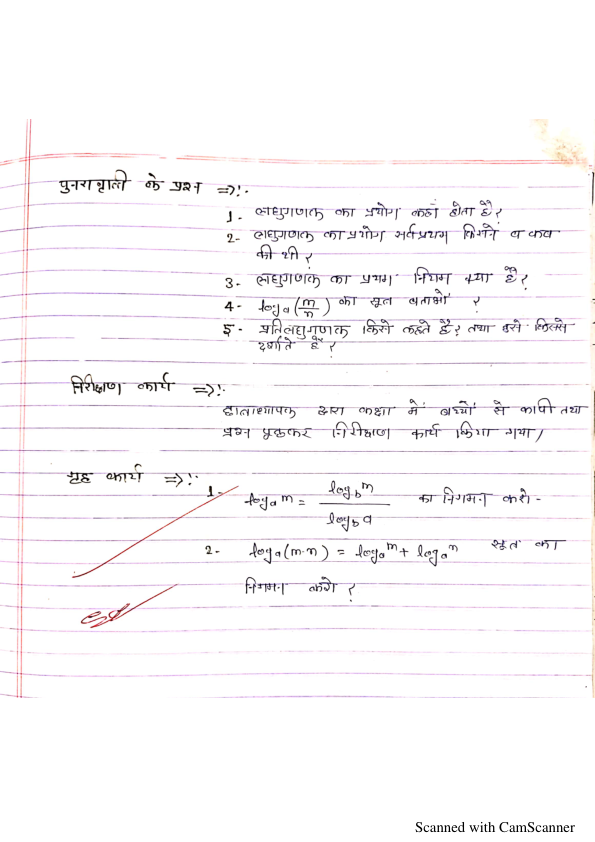 पुनरावृत्ति के प्रश्न ⇒:-
1- लघुगणक का प्रयोग कहाँ होता है?
2- लघुगणक का प्रयोग सर्वप्रथम किसने व कब
की थी?
3- लघुगणक का प्रथम नियम क्या है?
4- logₐ(m/n) का सूत्र बताओ ?
5- प्रतिलघुगणक किसे कहते हैं? तथा इसे किससे
दर्शाते हैं?
निरीक्षण कार्य ⇒:
छात्राध्यापक द्वारा कक्षा में बच्चों से कापी तथा
प्रश्न पूछकर निरीक्षण कार्य किया गया /
गृह कार्य ⇒:-
1- logₐm = log_b m / log_b a का निगमन करो -
2- logₐ(m·n) = logₐm + logₐn सूत्र का
निगमन करो ?
Scanned with CamScanner